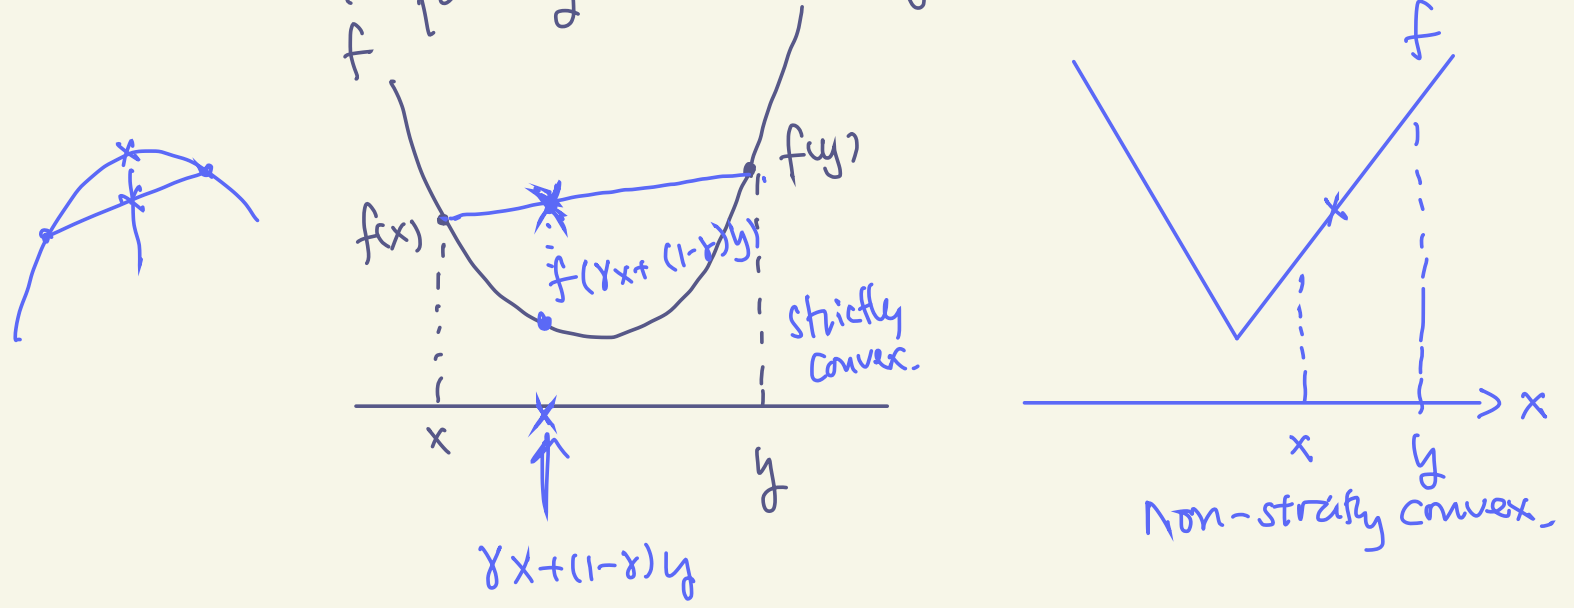 f
f(x)
f(y)
f(γx + (1-γ)y)
strictly
convex.
x
y
γx+(1-γ)y
f
x
x
y
Non-strictly convex.